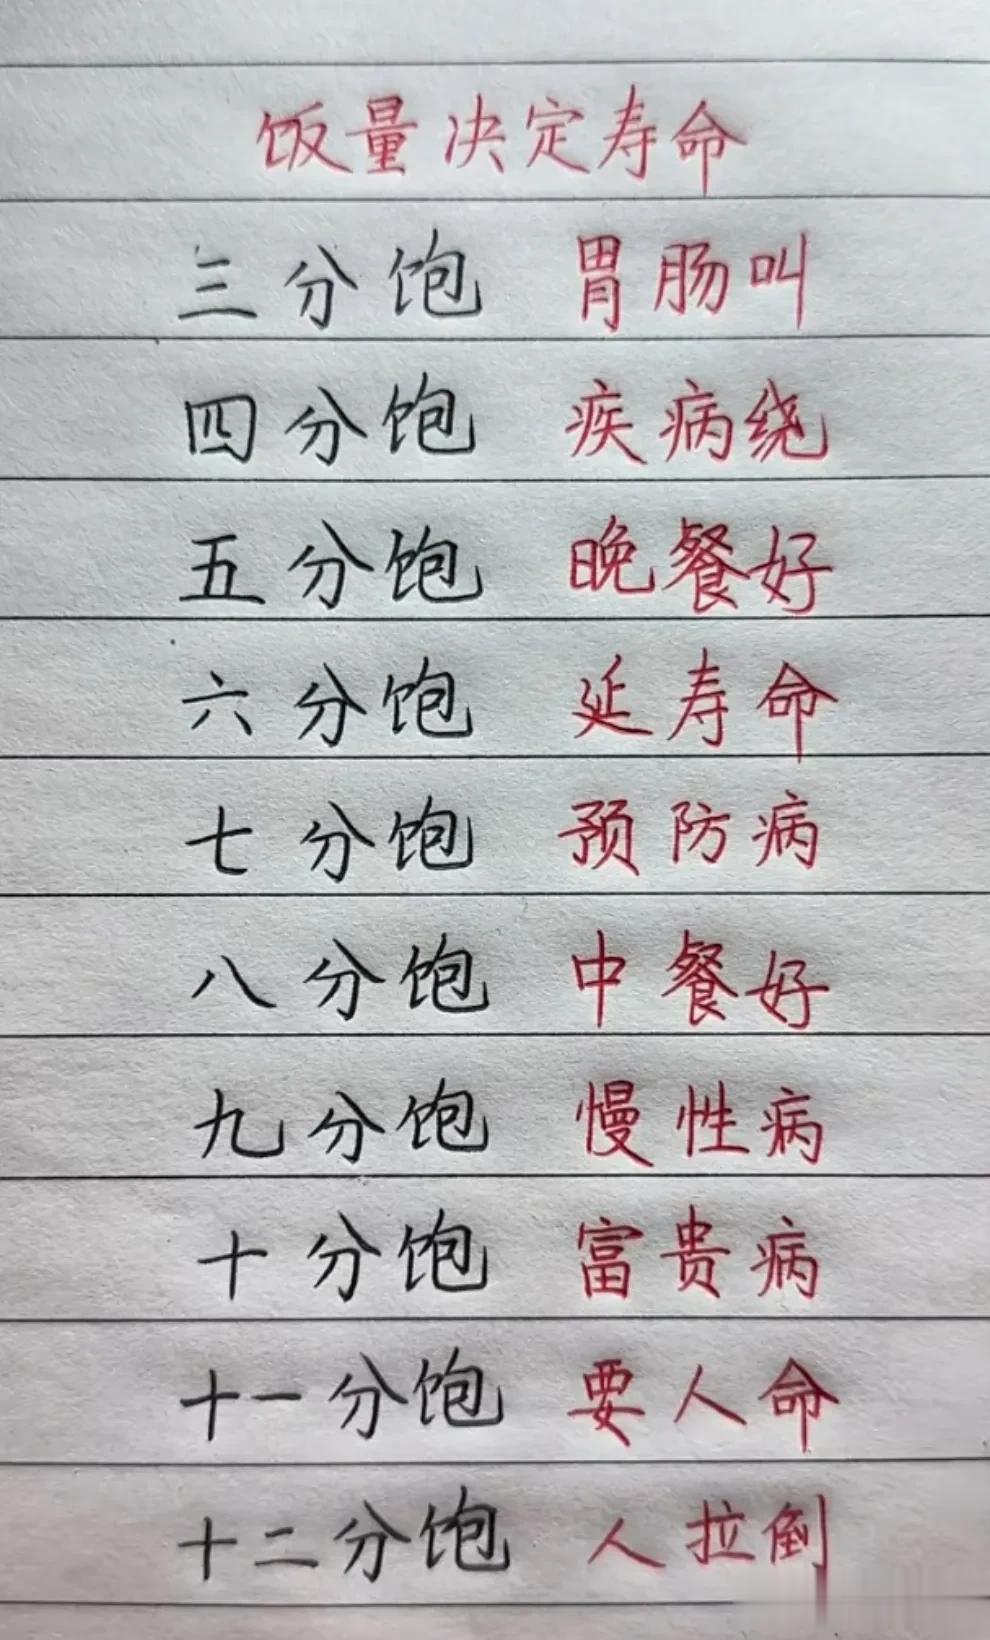 饭量决定寿命
三分饱 胃肠叫
四分饱 疾病绕
五分饱 晚餐好
六分饱 延寿命
七分饱 预防病
八分饱 中餐好
九分饱 慢性病
十分饱 富贵病
十一分饱 要人命
十二分饱 人拉倒